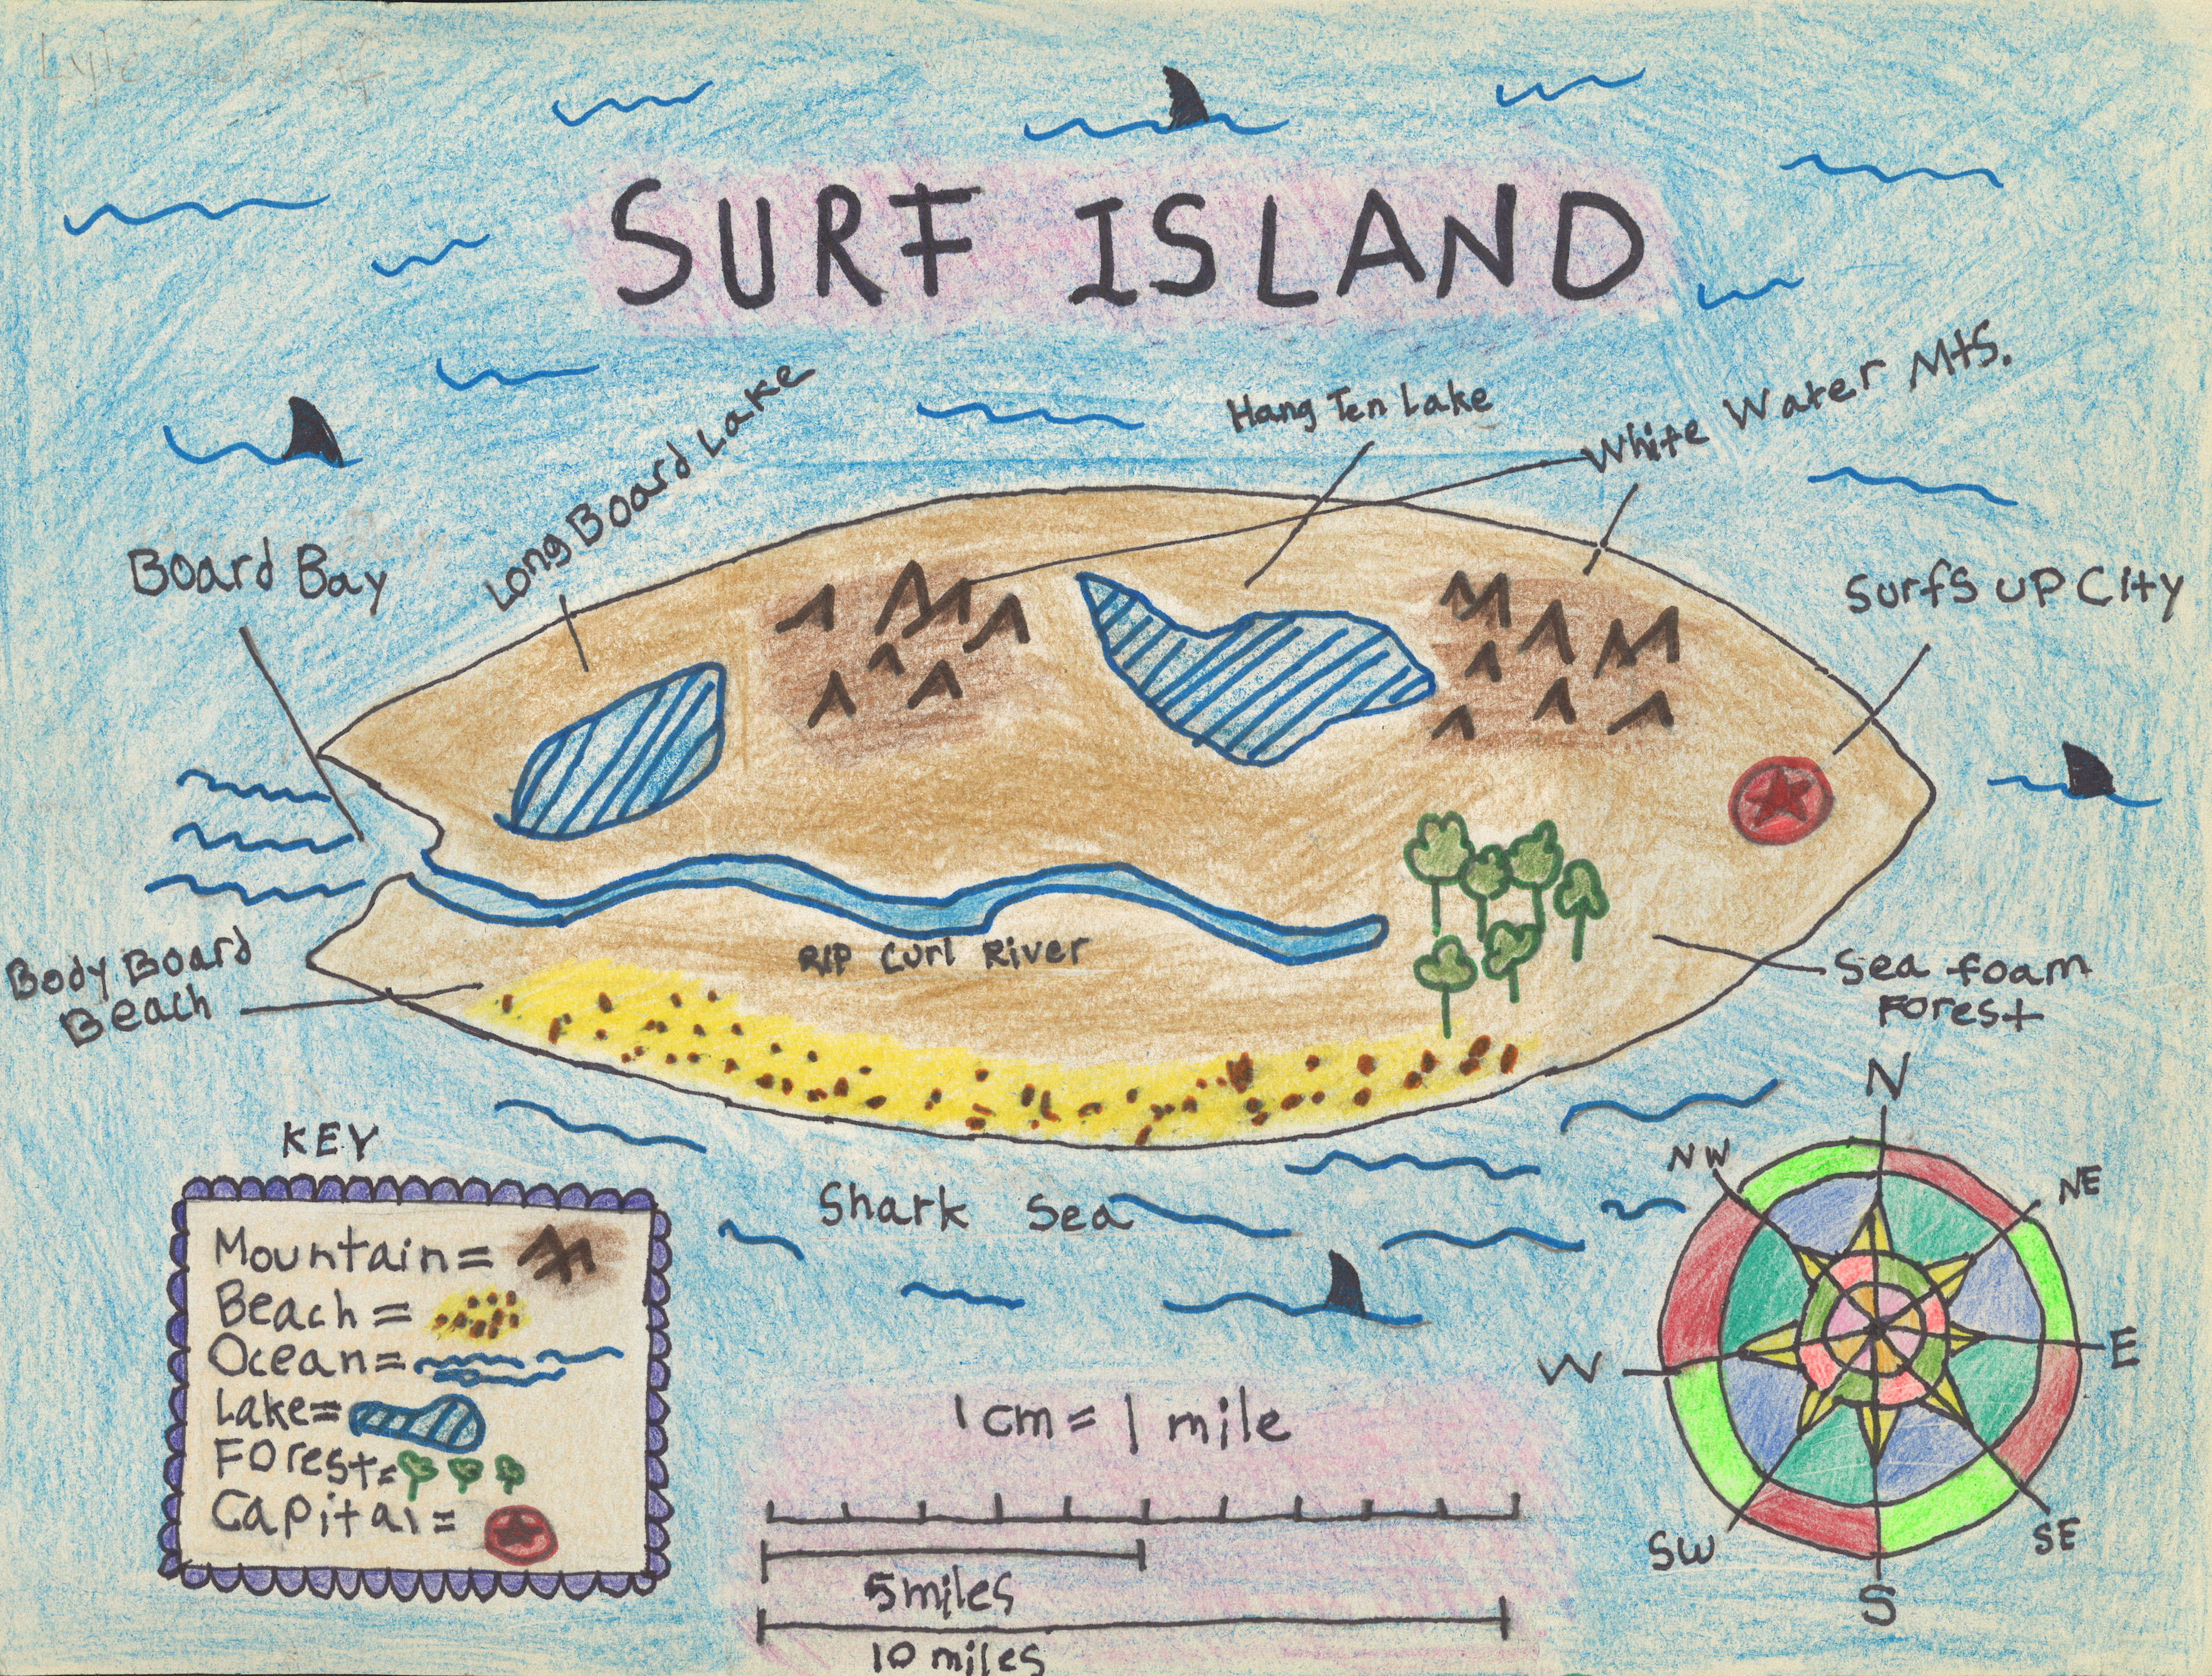 Lyle
SURF ISLAND
Long Board Lake
Hang Ten Lake
White Water Mts.
Board Bay
Surfs up City
RIP Curl River
Body Board
Beach
Sea foam
Forest
Shark Sea
KEY
Mountain=
Beach=
Ocean=
Lake=
Forest=
Capital=
1cm=1 mile
5 miles
10 miles
N
NE
E
SE
S
SW
W
NW